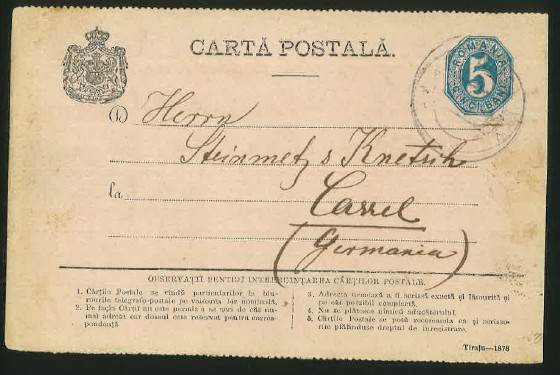 CARTĂ POSTALĂ.
ROMANIA
5
CINCI BANI
D
Herrn
Steinmetz &
la
Cassel
(Germania)
OBSERVAȚII PENTRU ÎNTREBUINȚAREA CĂRȚILOR POSTALE.
1. Cărțile Postale se vindă particularilor la biu-
rourile telegrafo-postale pe valoarea lor nominală.
2. Pe fața Cărții nu este permis a se scri de cât nu-
mai adresa iar dosul este reservat pentru cores-
pondență
3. Adresa urmează a fi scrisă exactă și lămurită și
pe cât posibil completă.
4. Nu se plătesce nimica aducătorului.
5. Cărțile Postale se potă recomanda ca și scriso-
rile plătindu-se dreptul de înregistrare.
Tiraju—1878